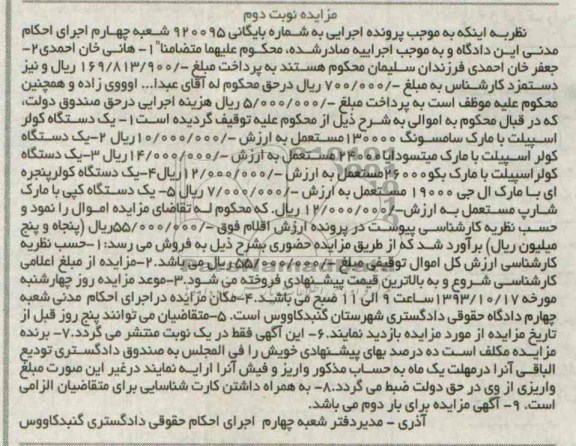 مزایده نوبت دوم
نظربه اینکه به موجب پرونده اجرایی به شماره بایگانی ۹۲۰۰۹۵ شعبه چهارم اجرای احکام
مدنی این دادگاه و به موجب اجراییه صادرشده، محکوم علیهما متضامنا ۱- هانی خان احمدی ۲-
جعفر خان احمدی فرزندان سلیمان محکوم هستند به پرداخت مبلغ -/۱۶۹/۸۱۳/۹۰۰ ریال و نیز
دستمزد کارشناس به مبلغ -/۷۰۰/۰۰۰ ریال درحق محکوم له آقای عبدا... اوووی زاده و همچنین
محکوم علیه موظف است به پرداخت مبلغ -/۵/۰۰۰/۰۰۰ ریال هزینه اجرایی درحق صندوق دولت،
که در قبال محکوم به اموالی به شرح ذیل از محکوم علیه توقیف گردیده است ۱- یک دستگاه کولر
اسپیلت با مارک سامسونگ ۱۳۰۰۰۰ مستعمل به ارزش -/۱۰/۰۰۰/۰۰۰ ریال ۲-یک دستگاه
کولر اسپیلت با مارک میتسودایا ۲۴۰۰۰ مستعمل به ارزش -/۱۴/۰۰۰/۰۰۰ ریال ۳-یک دستگاه
کولراسپیلت با مارک بکو ۲۶۰۰۰ مستعمل به ارزش -/۱۲/۰۰۰/۰۰۰ ریال ۴-یک دستگاه کولرپنجره
ای با مارک ال جی ۱۹۰۰۰ مستعمل به ارزش -/۷/۰۰۰/۰۰۰ ریال ۵- یک دستگاه کپی با مارک
شارپ مستعمل به ارزش -/۱۲/۰۰۰/۰۰۰ ریال. که محکوم له تقاضای مزایده اموال را نمود و
حسب نظریه کارشناسی پیوست در پرونده ارزش اقلام فوق -/۵۵/۰۰۰/۰۰۰ ریال (پنجاه و پنج
میلیون ریال) برآورد شد که از طریق مزایده حضوری بشرح ذیل به فروش می رسد: ۱-حسب نظریه
کارشناسی ارزش کل اموال توقیفی مبلغ -/۵۵/۰۰۰/۰۰۰ ریال می باشد. ۲-مزایده از مبلغ اعلامی
کارشناسی شروع و به بالاترین قیمت پیشنهادی فروخته می شود. ۳-موعد مزایده روز چهارشنبه
مورخه ۱۳۹۳/۱۰/۱۷ ساعت ۹ الی ۱۱ صبح می باشد. ۴-مکان مزایده دراجرای احکام مدنی شعبه
چهارم دادگاه حقوقی دادگستری شهرستان گنبدکاووس است. ۵-متقاضیان می توانند پنج روز قبل از
تاریخ مزایده از مورد مزایده بازدید نمایند. ۶- این آگهی فقط در یک نوبت منتشر می گردد. ۷- برنده
مزایده مکلف است ده درصد بهای پیشنهادی خویش را فی المجلس به صندوق دادگستری تودیع
الباقی آنرا درمهلت یک ماه به حساب مذکور واریز و فیش آنرا ارایه نمایند درغیر این صورت مبلغ
واریزی از وی در حق دولت ضبط می گردد. ۸- به همراه داشتن کارت شناسایی برای متقاضیان الزامی
است. ۹- آگهی مزایده برای بار دوم می باشد.
آذری - مدیردفتر شعبه چهارم اجرای احکام حقوقی دادگستری گنبدکاووس